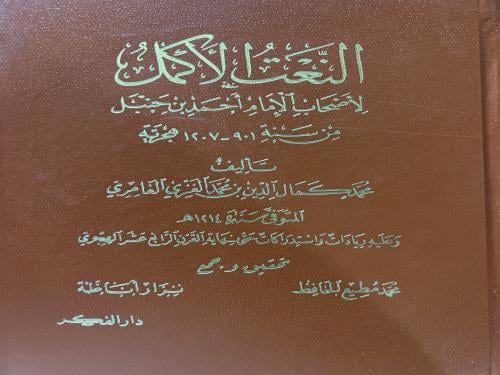 النَّعَتُ الأَكْمَلُ
لِأَصْحَابِ الإِمَامِ أَحْمَد بْن حَنْبَل
مِن سَنَة ٩٠١ - ١٢٠٧ هِجْرِيَّة
تأليف
محمد كمال الدين بن محمد الغزي العامري
المتوفى سنة ١٢١٤ هـ
وعليه زيادات واستدراكات حتى نهاية القرن الرابع عشر الهجري
تحقيق وجمع
محمد مطيع الحافظ نزار أباظة
دار الفكر